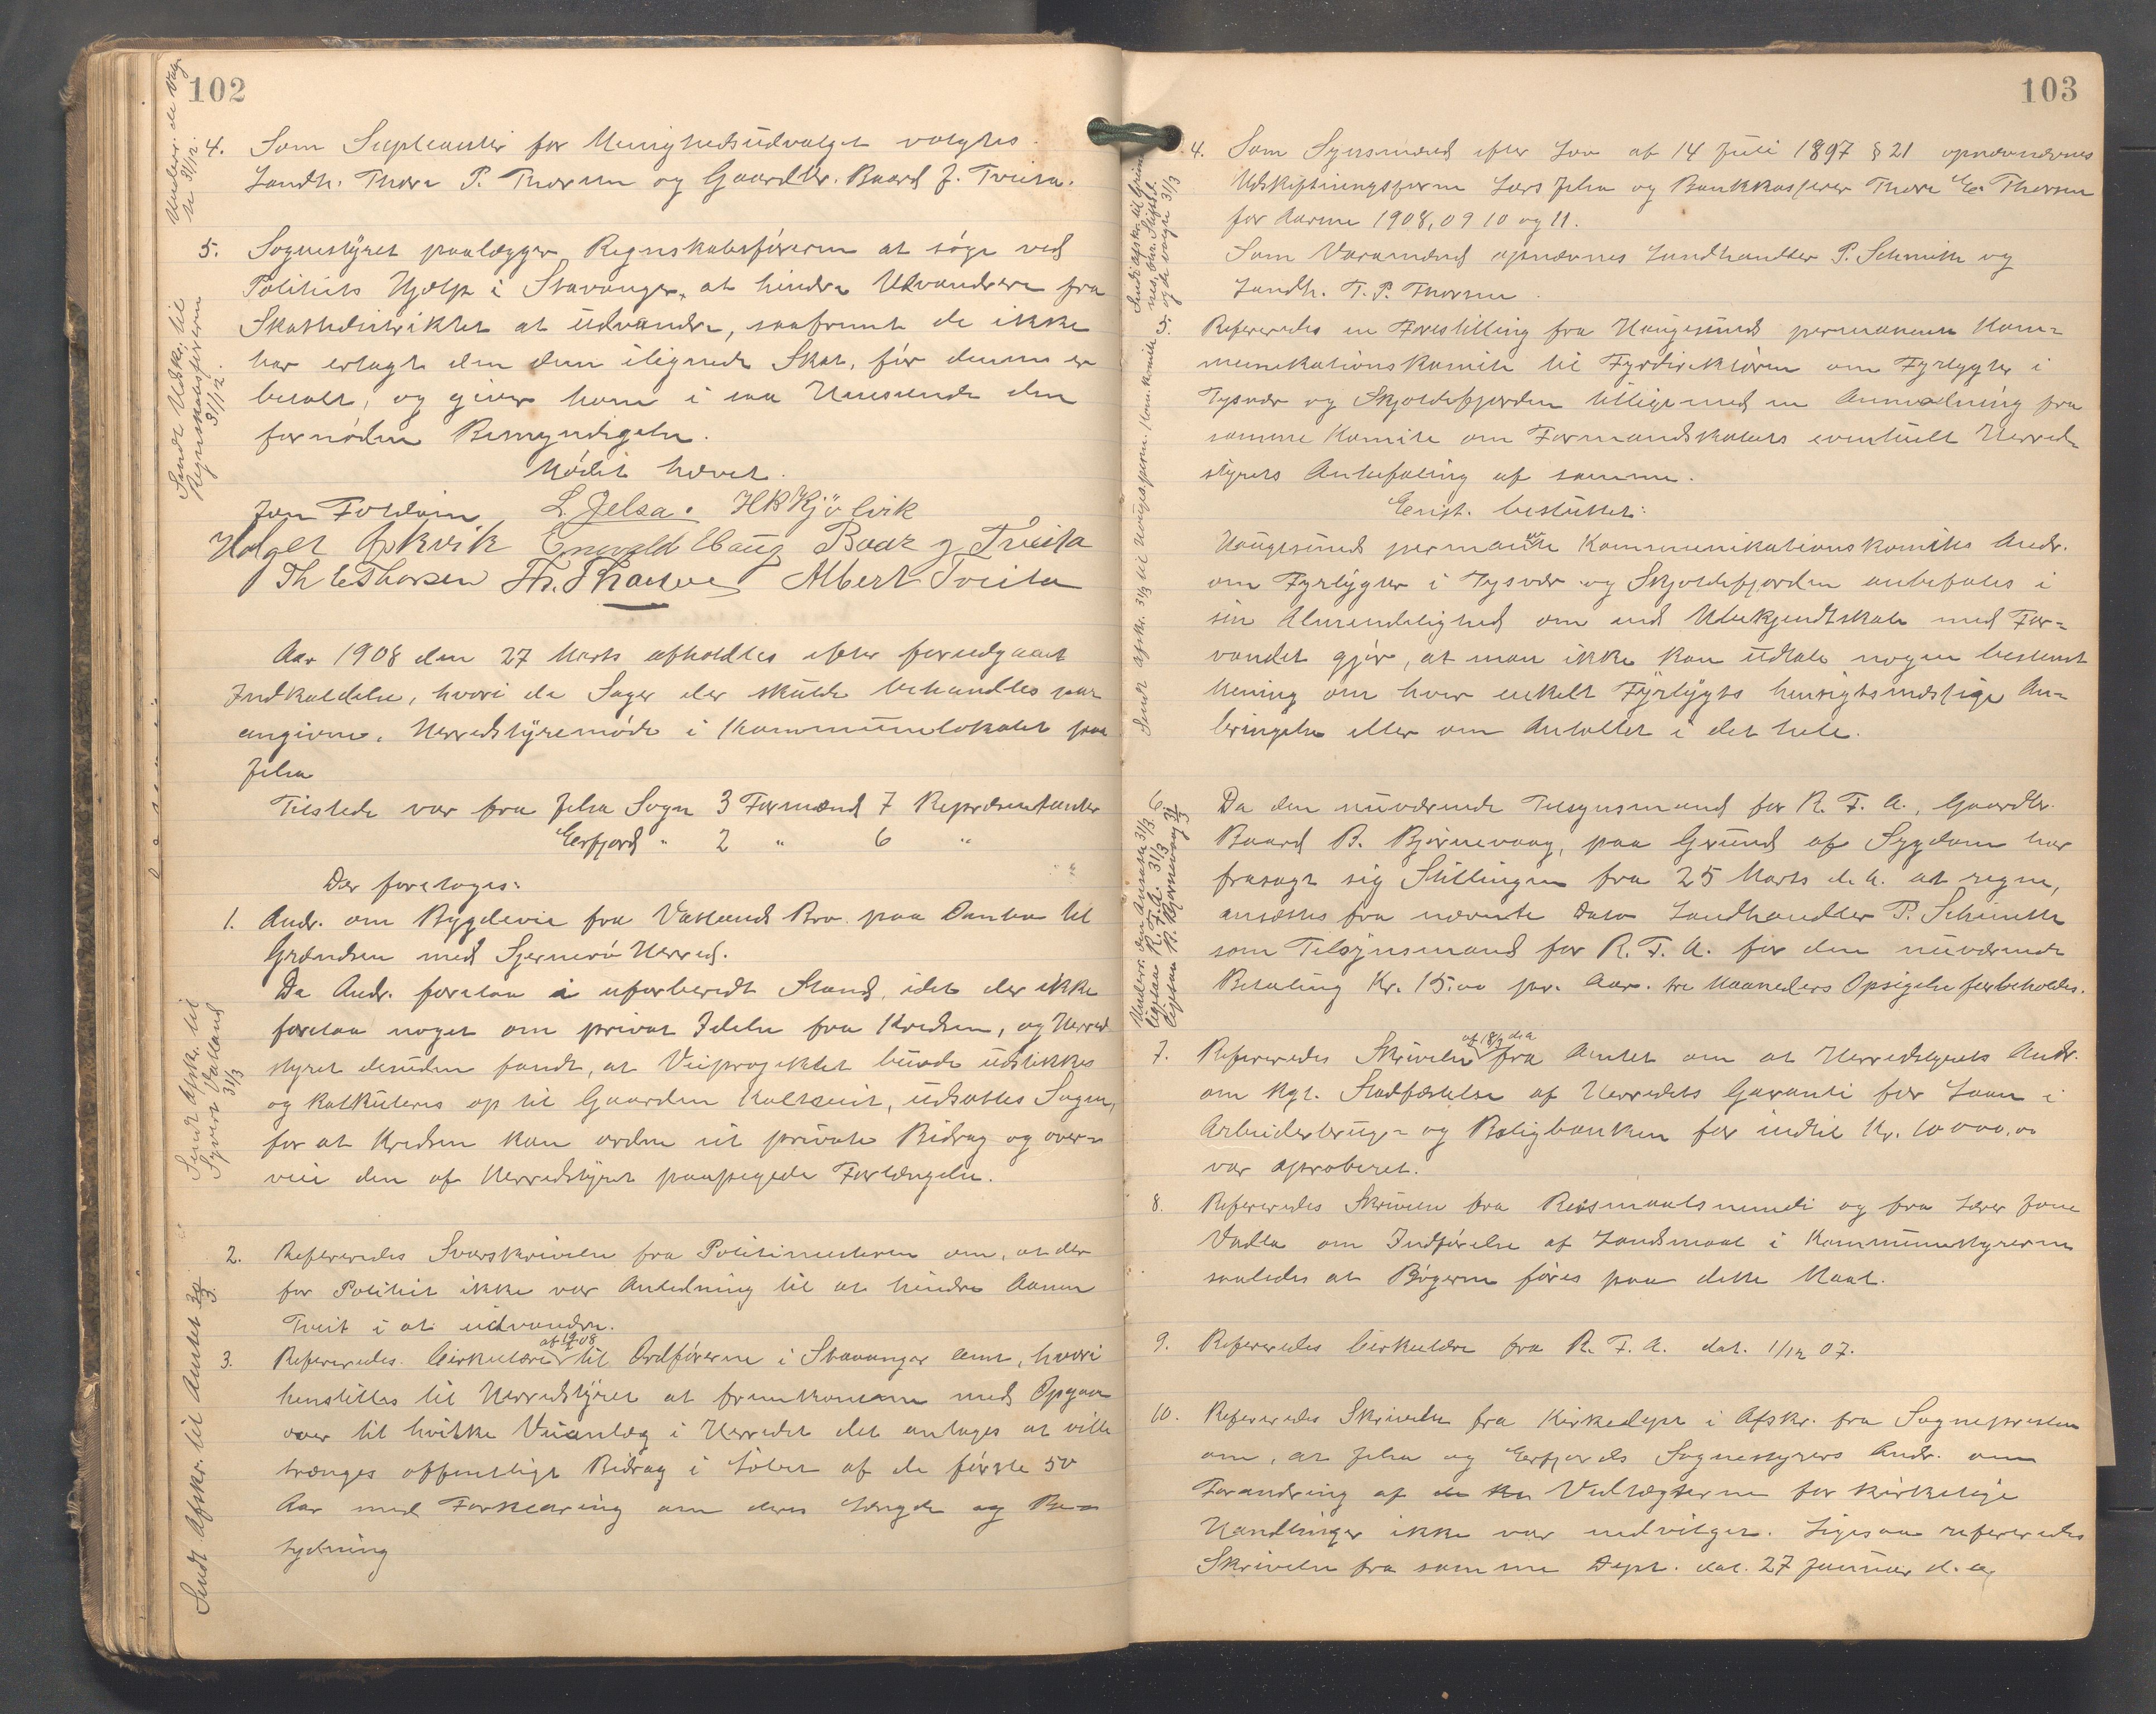 102
Underr. de valgte 31/12.
4. Som Supleanter for Menighedsudvalget valgtes
Landh. Thore P. Thorsen og Gaardbr. Baard J. Tveita.
Sendt Udskr. til Regnskabsføreren 31/12.
5. Sognestyret paalægger Regnskabsføreren at søge ved
Politiets Hjælp i Stavanger, at hindre Udvandrere fra
Skattedistriktet at udvandre, saafremt de ikke
har erlagt den dem ilignede Skat, før denne er
betalt, og giver ham i saa Henseende den
fornødne Bemyndigelse.
Mødet hævet.
L. Jelsa. HKKjølvik
Holger Enevald Haug Baar J Tveita
Th E Thorsen Th. Albert Tveita
Aar 1908 den 27 Marts afholdtes efter forudgaaet
Indkaldelse, hvori de Sager der skulde behandles var
angivne, Herredstyremøde i Kommunelokalet paa
Jelsa
Tilstede var fra Jelsa Sogn 3 Formænd 7 Repræsentanter
Erfjord " 2 " 6 "
Der foretoges:
Sendt Afskr. til Syvert Vatland 31/3
1. Andr. om Bygdevei fra Vatlands Bro paa Ombo til
Grændsen med Sjernerø Herred.
Da Andr. forelaa i uforberedt Stand, idet der ikke
forelaa noget om privat Ydelse fra Kredsen, og Herred
styret desuden fandt, at Veiprojektet burde udstikkes
og kalkuleres op til Gaarden Kaltveit, udsattes Sagen,
for at Kredsen kan ordne sit private Bidrag og over-
veie den af Herredstyret paapegede Forlængelse.
2. Refereredes Svarskrivelse fra Politimesteren om, at der
for Politiet ikke var Anledning til at hindre Aanen
Tveit i at udvandre.
Sendt Afskr. til Amtet
3. Refereredes Cirkulære til Ordførerne i Stavanger Amt, hvori
henstilles til Herredstyret at fremkomme med Opgave
over til hvilke Veianlæg i Herredet det antages at ville
trænges offentlige Bidrag i Løbet af de første 50
Aar med Forklaring om deres Længde og Be-
tydning
103
4. Som Synsmænd efter Lov af 14 Juli 1897 § 21 opnævnes
Udskiftningsform. Lars Jelsa og Bankkasserer Thore E. Thorsen
for Aarene 1908, 09 10 og 11.
Som Varamænd opnævnes Landhandler P. Schmith og
Landh. T. P. Thorsen.
Sendt afskr. 31/3 til Hauges. perm. Kom.komite
5. Refereredes en Forestilling fra Haugesunds permanente Kom=
munikationskomite til Fyrdirektøren om Fyrlygter i
Tysvær og Skjoldefjorden tilligemed en Anmodning fra
samme Komite om Formandskabets eventuelt Herred-
styrets Anbefaling af samme.
Enst. besluttet:
Haugesunds permanente Kommunikationskomites Andr.
om Fyrlygter i Tysvær og Skjoldefjorden anbefales i
sin Almindelighed om end Ubekjendtskab med Far=
vandet gjør, at man ikke kan udtale nogen bestemt
Mening om hver enkelt Fyrlygts hensigtsmæssige An=
bringelse eller om Antallet i det hele.
Underr. den Ansatte 31/3.
ligesaa R. F. A. 31/3
ligesaa B. Bjørnevaag 31/3
6 Da den nuværende Tilsynsmand for R. F. A., Gaardbr.
Baard B. Bjørnevaag, paa Grund af Sygdom har
frasagt sig Stillingen fra 25 Marts d. A. at regne,
ansættes fra nævnte Dato Landhandler P. Schmith
som Tilsynsmand for R. F. A. for den nuværende
Betaling Kr. 15.00 pr. Aar. tre Maaneders Opsigelse forbeholdes.
7. Refereredes Skrivelse af 18/3 d. a fra Amtet om at Herredstyrets Andr.
om Kgl. Stadfæstelse af Herredets Garanti for Laan i
Arbeiderbrug- og Boligbanken for indtil Kr. 10 000.00
var aproberet.
8. Refereredes Skrivelse fra Reismaalsnemdi og fra Lærer Jone
Vadla om Indførelse af Landsmaal i Kommunestyrerne
saaledes at Bøgerne føres paa dette Maal.
9. Refereredes Cirkulære fra R. F. A. dat. 1/12 07.
10. Refereredes Skrivelse fra Kirkedept i Afskr. fra Sognepresten
om, at Jelsa og Erfjords Sognestyrers Andr. om
Forandring af de Vedtægterne for kirkelige
Handlinger ikke var indvilget. Ligesaa refereredes
Skrivelse fra samme Dept. dat. 27 Januar d. a.